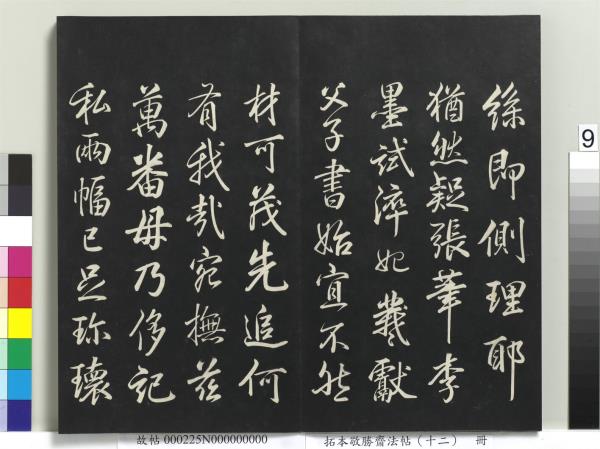 絲即側理耶
猶然疑張華李
墨試淬妃羲獻
父子書始宜不然
材可茂先追何
有我哉宛撫茲
萬番毋乃侈記
私兩幅已足珍瓌
9
故帖000225N000000000
拓本敬勝齋法帖（十二） 冊